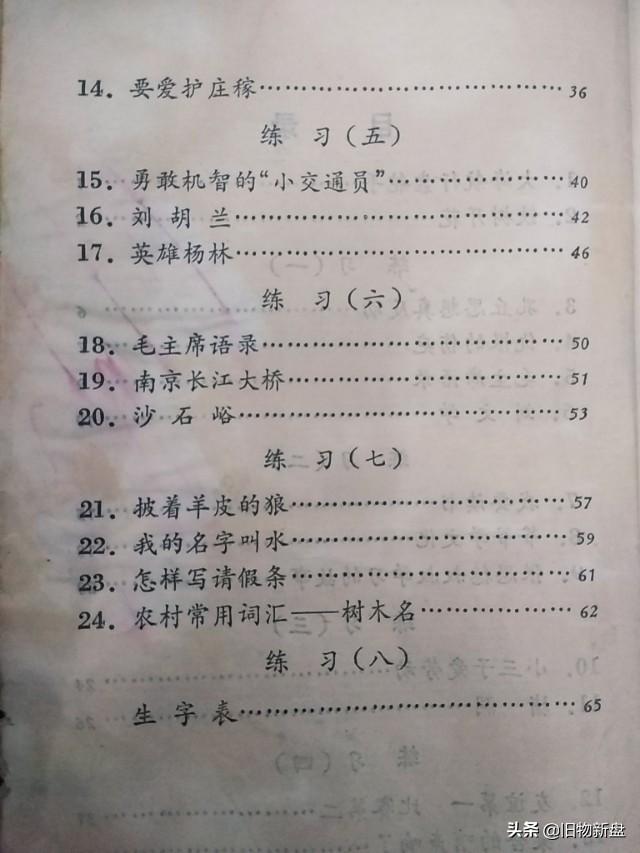 14. 要爱护庄稼……………………………36
练 习（五）
15. 勇敢机智的“小交通员”………………40
16. 刘 胡 兰……………………………42
17. 英雄杨林……………………………46
练 习（六）
18. 毛主席语录…………………………50
19. 南京长江大桥………………………51
20. 沙 石 峪……………………………53
练 习（七）
21. 披着羊皮的狼………………………57
22. 我的名字叫水………………………59
23. 怎样写请假条………………………61
24. 农村常用词汇——树木名……………62
练 习（八）
生 字 表……………………………65
头条 @旧物新盘